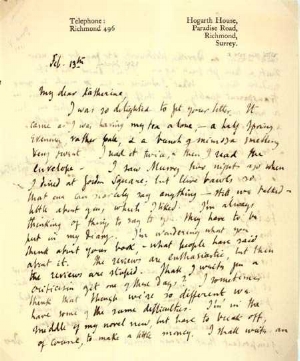 Telephone:
Richmond 496
Hogarth House,
Paradise Road,
Richmond,
Surrey.
Feb. 13th
My dear Katherine,
I was so delighted to get your letter. It
came as I was having my tea alone, – a half Spring
evening, rather pale, & a bunch of mimosa smelling
I read it twice, & then I read the
envelope – I saw Murry two nights ago when
I dined at Gordon Square, but
that one can scarcely say anything – still we talked a
little about you, which I liked. I'm always
thinking of things to say to you – they have to be
put in my diary. I'm wondering what you
think about your book – what people have said
about it. The reviews are enthusiastic, but then
the reviews are stupid. Shall I write you a
criticism one of these days? I sometimes
think that though we're so different we
have some of the same difficulties. I'm in the
middle of my novel now, but have to break off,
of course, to make a little money. I shall write an